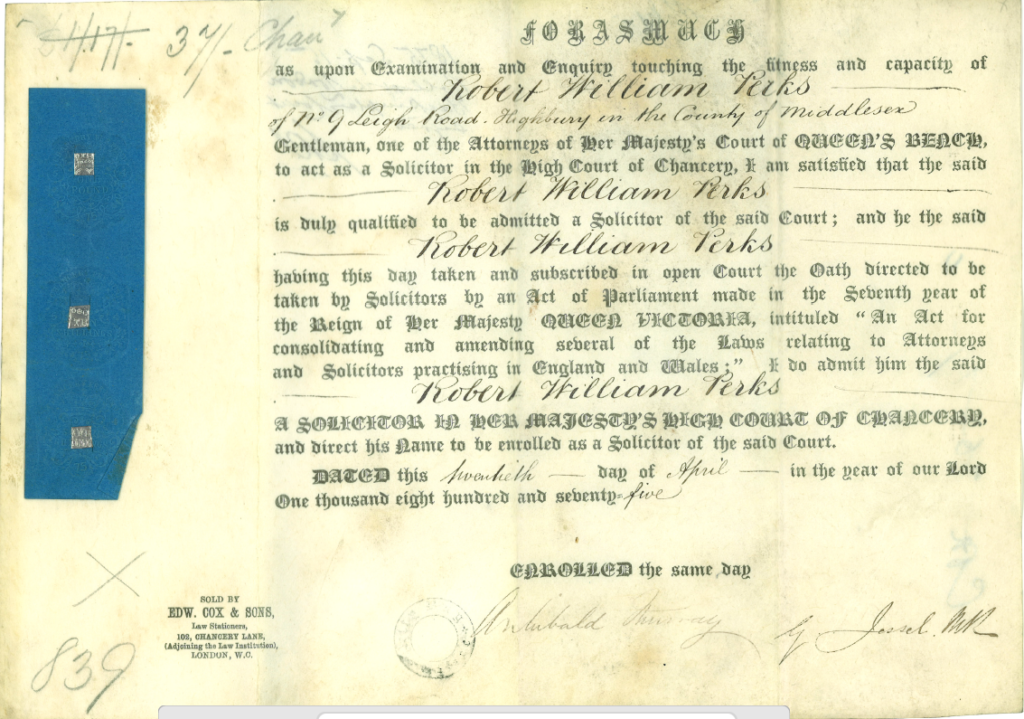 37/- Chan
FORASMUCH
as upon Examination and Enquiry touching the fitness and capacity of
Robert William Perks
of No 9 Leigh Road. Highbury in the County of Middlesex
Gentleman, one of the Attorneys of Her Majesty's Court of QUEEN'S BENCH,
to act as a Solicitor in the High Court of Chancery, I am satisfied that the said
Robert William Perks
is duly qualified to be admitted a Solicitor of the said Court; and he the said
Robert William Perks
having this day taken and subscribed in open Court the Oath directed to be
taken by Solicitors by an Act of Parliament made in the Seventh year of
the Reign of Her Majesty QUEEN VICTORIA, intituled "An Act for
consolidating and amending several of the Laws relating to Attorneys
and Solicitors practising in England and Wales;" I do admit him the said
Robert William Perks
A SOLICITOR IN HER MAJESTY'S HIGH COURT OF CHANCERY,
and direct his Name to be enrolled as a Solicitor of the said Court.
DATED this twentieth — day of April — in the year of our Lord
One thousand eight hundred and seventy-five
ENROLLED the same day
Archibald Murray
G Jessel. MR
SOLD BY
EDW. COX & SONS,
Law Stationers,
102, CHANCERY LANE,
(Adjoining the Law Institution),
LONDON, W.C.
839